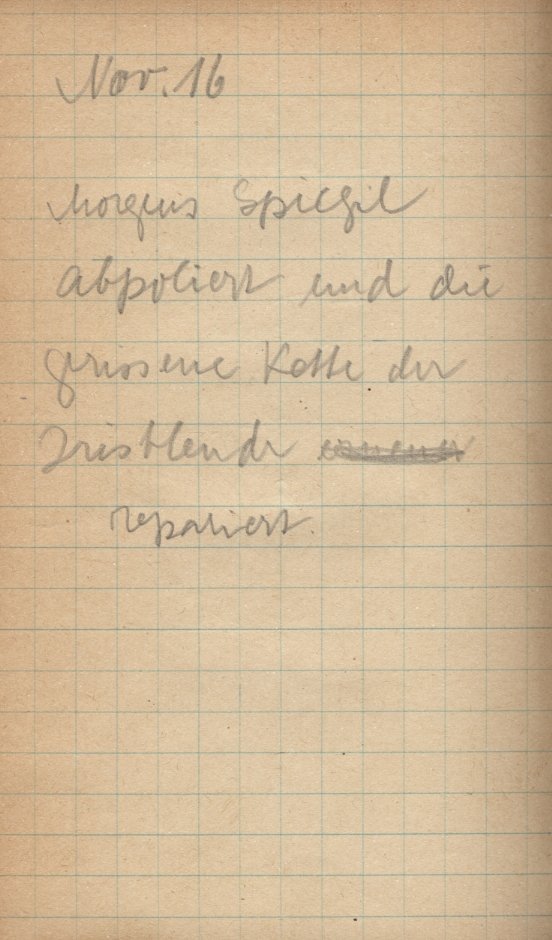 Nov. 16
Morgens Spiegel
abpoliert und die
gerissene Kette der
Irisblende erneuer
repariert.